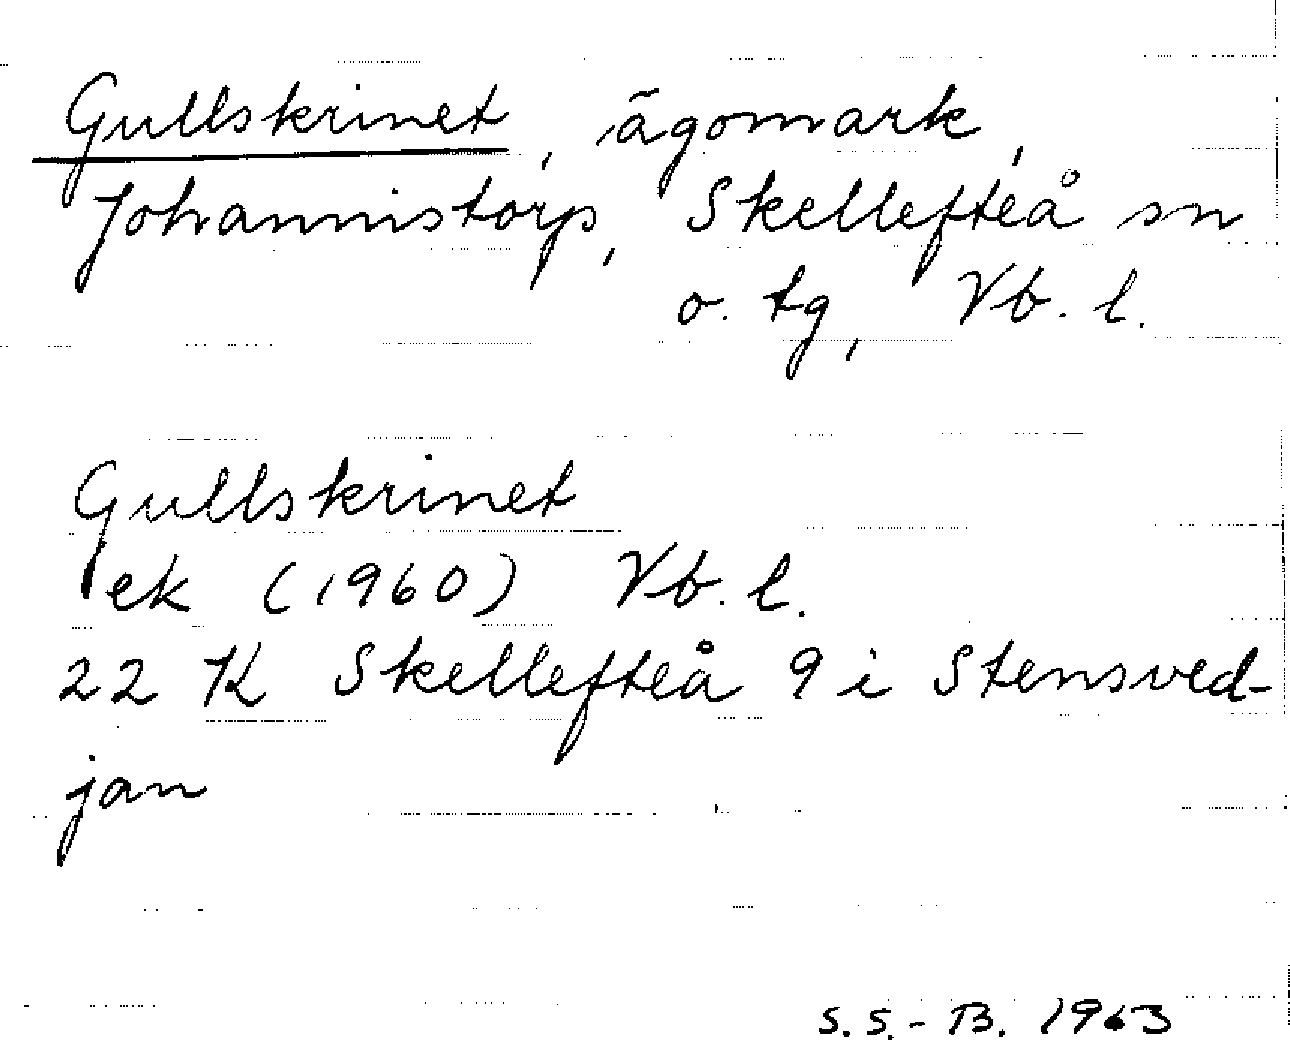 Gullskrinet, ägomark,
Johannistorp, Skellefteå sn
o. tg, Vb. l.
Gullskrinet
ek (1960) Vb. l.
22 K Skellefteå 9 i Stensved-
jan
S. S. - B. 1963